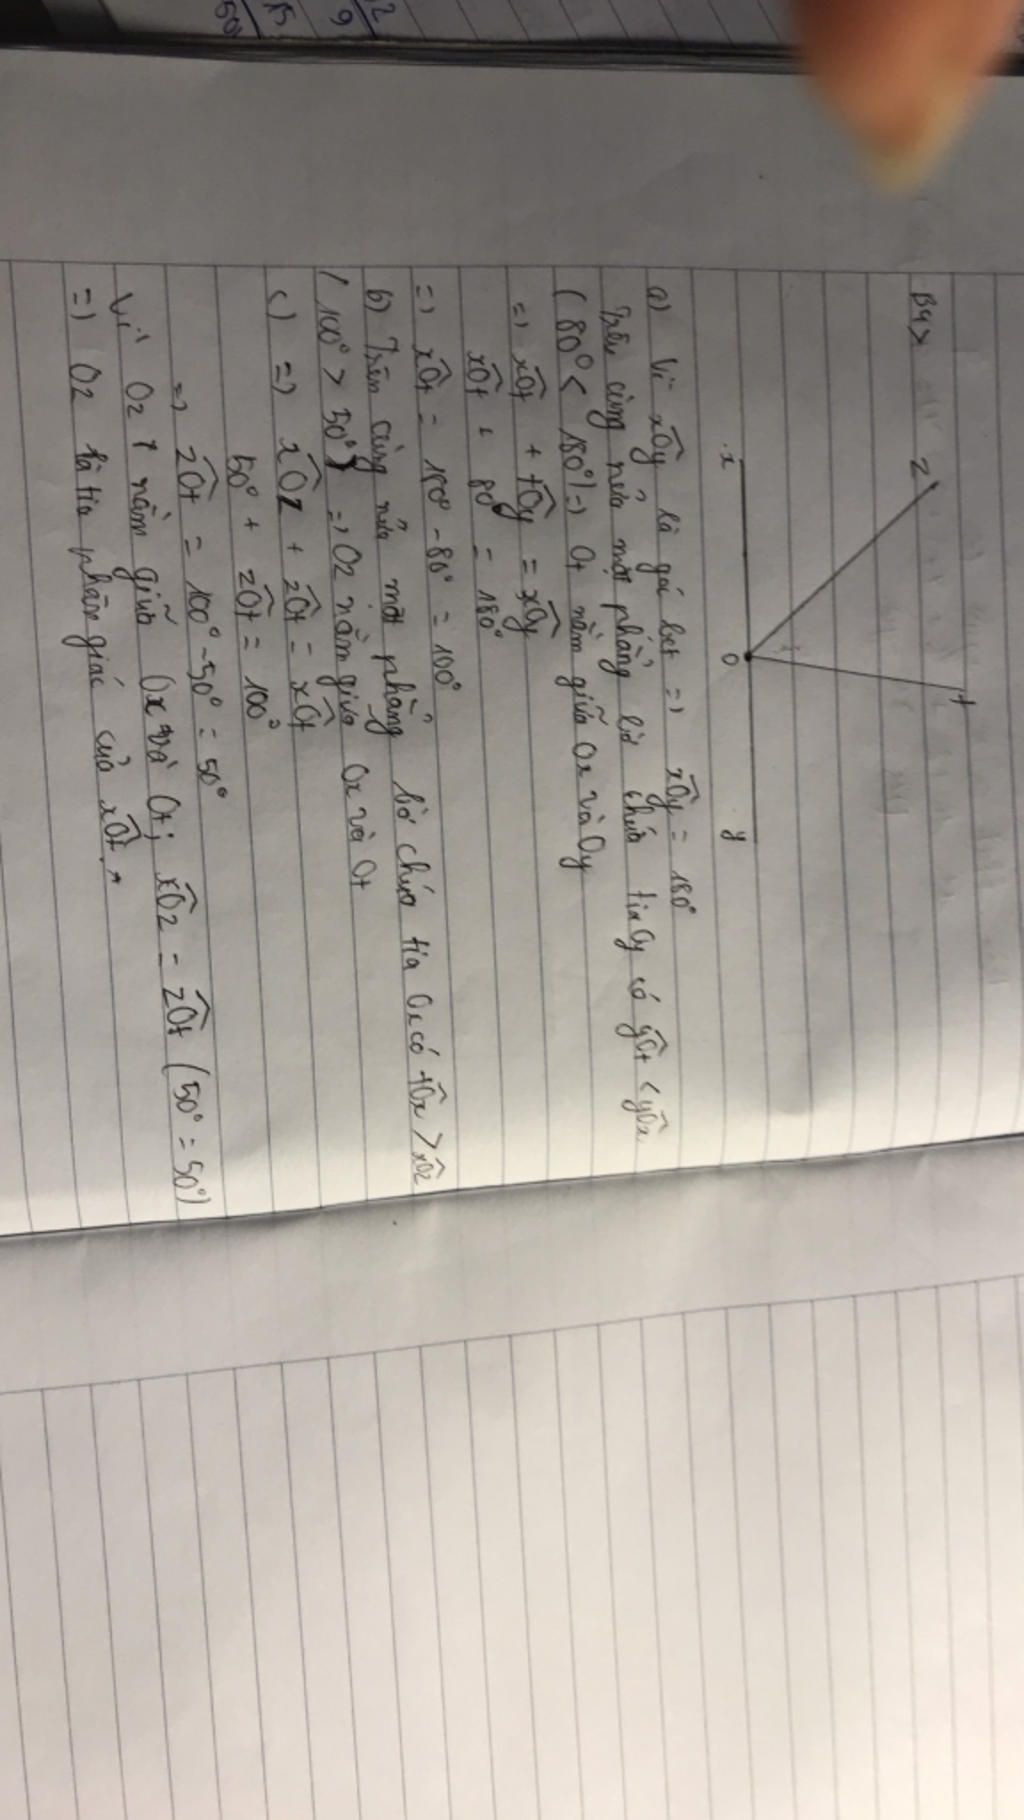 B4>
z
t
x
O
y
a) Vì xOy là góc bẹt => xOy = 180°
Trên cùng nửa mặt phẳng bờ chứa tia Oy có yOt < yOx
(80° < 180°) => Ot nằm giữa Ox và Oy
=> xOt + tOy = xOy
xOt + 80° = 180°
=> xOt = 180° - 80° = 100°
b) Trên cùng nửa mặt phẳng bờ chứa tia Ox có tOx > xOz
(100° > 50°) => Oz nằm giữa Ox và Ot
c) => xOz + zOt = xOt
50° + zOt = 100°
=> zOt = 100° - 50° = 50°
Vì Oz nằm giữa Ox và Ot; xOz = zOt (50° = 50°)
=> Oz là tia phân giác của xOt
2
9
15
50